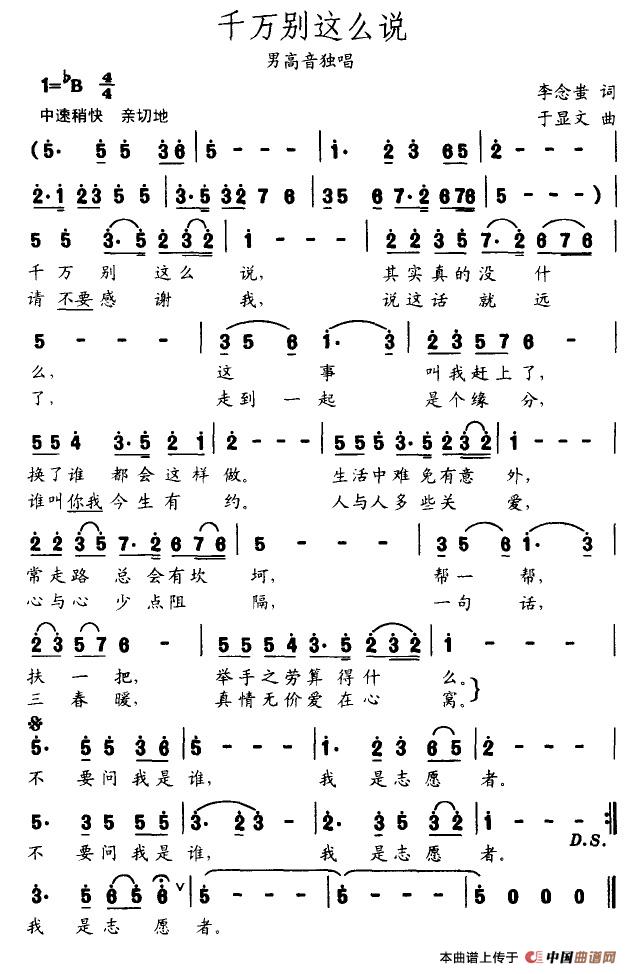 千万别这么说
男高音独唱
1=♭B 4/4
李念蚩 词
中速稍快 亲切地
于显文 曲
(5· 5 5 3 6 | 5 - - - | 1· 2 3 6 5 | 2 - - - |
2·1 2 3 5 5 | 3·5 3 2 7 6 | 3 5 6 7·2 6 7 6 | 5 - - - )
5 5 3·5 2 3 2 | 1 - - - | 2 2 3 5 7·2 6 7 6 |
千万别这么说, 其实真的没什
请不要感谢我, 说这话就远
5 - - - | 3 5 6 1· 3 | 2 3 5 7 6 - |
么, 这事叫我赶上了,
了, 走到一起是个缘分,
5 5 4 3·5 2 1 | 2 - - - | 5 5 5 5 3·5 2 3 2 | 1 - - - |
换了谁都会这样做。 生活中难免有意外,
谁叫你我今生有约。 人与人多些关爱,
2 2 3 5 7·2 6 7 6 | 5 - - - | 3 5 6 1· 3 |
常走路总会有坎坷, 帮一帮,
心与心少点阻隔, 一句话,
2 3 5 7 6 - | 5 5 5 4 3·5 2 3 2 | 1 - - - |
扶一把, 举手之劳算得什么。
三春暖, 真情无价爱在心窝。
5· 5 5 3 6 | 5 - - - | 1· 2 3 6 5 | 2 - - - |
不要问我是谁, 我是志愿者。
5· 3 5 5 5 | 3· 2 3 - | 2· 3 5 3 2 | 1 - - - :||
D.S.
不要问我是谁, 我是志愿者。
3· 5 2 3 6 6 ∨ | 5 - - - | 5 - - - | 5 0 0 0 ||
我是志愿者。
本曲谱上传于 中国曲谱网